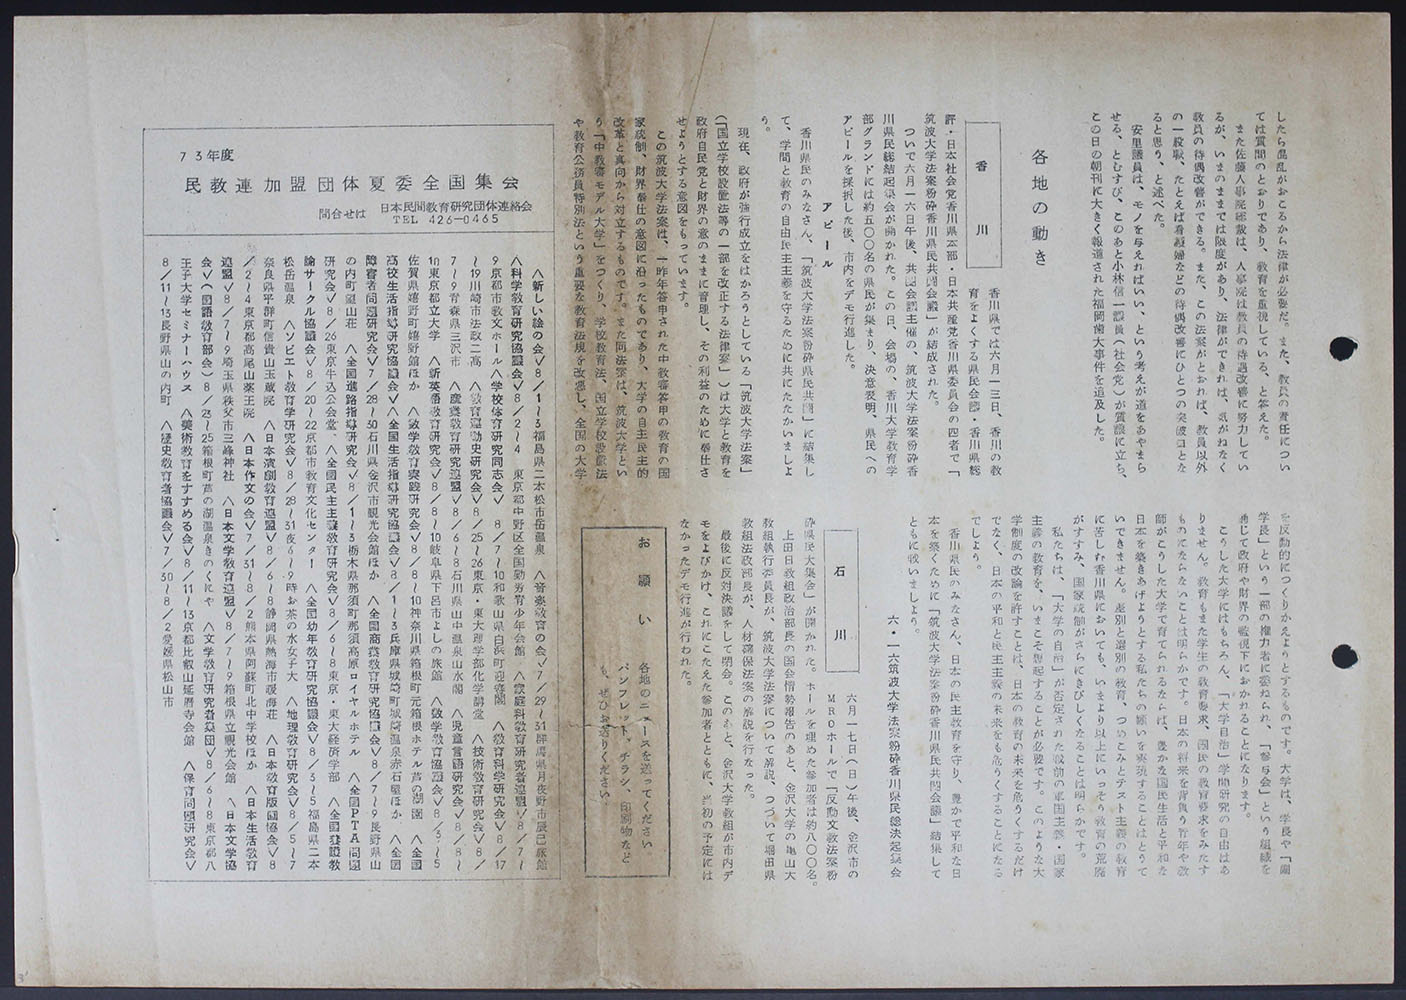 したら混乱がおこるから法律が必要だ。また、教員の責任につい
ては質問のとおりであり、教育を重視している、と答えた。
また佐藤人事院総裁は、人事院は教員の待遇改善に努力してい
るが、いまのままでは限度があり、法律ができれば、気がねなく
教員の待偶改善ができる。また、この法案がとおれば、教員以外
の一般職、たとえば看護婦などの待偶改善にひとつの突破口とな
ると思う、と述べた。
安里議員は、モノを与えればいい、という考えが道をあやまら
せる、とむすび、このあと小林信一議員（社会党）が質議に立ち、
この日の朝刊に大きく報道された福岡歯大事件を追及した。
各地の動き
香川
香川県では六月一三日、香川の教
育をよくする県民会議・香川県総
評・日本社会党香川県本部・日本共産党香川県委員会の四者で「
筑波大学法案粉砕香川県民共闘会議」が結成された。
ついで六月一六日午後、共闘会議主催の、筑波大学法案粉砕香
川県民総結起集会が開かれた。この日、会場の、香川大学教育学
部グランドには約五〇〇名の県民が集まり、決意表明、県民への
アピールを採択した後、市内をデモ行進した。
アピール
香川県民のみなさん、「筑波大学法案粉砕県民共闘」に結集し
て、学問と教育の自由民主主義を守るために共にたたかいましょ
う。
現在、政府が強行成立をはかろうとしている「筑波大学法案」
（「国立学校設置法等の一部を改正する法律案」）は大学と教育を
政府自民党と財界の意のままに管理し、その利益のために奉仕さ
せようとする意図をもっています。
この筑波大学法案は、一昨年答申された中教審答申の教育の国
家統制、財界奉仕の意図に沿ったものであり、大学の自主民主的
改革と真向から対立するものです。また同法案は、筑波大学とい
う「中教審モデル大学」をつくり、学校教育法、国立学校設置法
や教育公務員特別法という重要な教育法規を改悪し、全国の大学
を反動的につくりかえようとするものです。大学は、学長や「副
学長」という一部の権力者に委ねられ、「参与会」という組織を
通じて政府や財界の監視下におかれることになります。
こうした大学にはもちろん、「大学自治」学問研究の自由はあ
りません。教育もまた学生の教育要求、国民の教育要求をみたす
ものにならないことは明らかです。日本の将来を背負う青年や教
師がこうした大学で育てられるならば、豊かな国民生活と平和な
日本を築きあげようとする私たちの願いを実現することはとうて
いできません。差別と選別の教育、つめこみとテスト主義の教育
に苦しむ香川県においても、いまより以上にいっそう教育の荒廃
がすすみ、国家統制がさらにきびしくなることは明らかです。
私たちは、「大学の自治」が否定された戦前の軍国主義・国家
主義の教育を、いまこそ想起することが必要です。このような大
学制度の改訂を許すことは、日本の教育の未来を危うくするだけ
でなく、日本の平和と民主主義の未来をも危うくすることになる
でしょう。
香川県民のみなさん、日本の民主教育を守り、豊かで平和な日
本を築くために「筑波大学法案粉砕香川県民共闘会議」結集して
ともに戦いましょう。
六・一六筑波大学法案粉砕香川県民総決起集会
石川
六月一七日（日）午後、金沢市の
MROホールで「反動文教法案粉
砕県民大集会」が開かれた。ホールを埋めた参加者は約八〇〇名。
上田日教組政治部長の国会情勢報告のあと、金沢大学の亀山大
教組執行委員長が、筑波大学法案について解説、つづいて堀田県
教組法政部長が、人材確保法案の解説を行なった。
最後に反対決議をして閉会。このあと、金沢大学教組が市内デ
モをよびかけ、これにこたえた参加者とともに、当初の予定には
なかったデモ行進が行われた。
お願い
各地のニュースを送ってください
パンフレット、チラシ、印刷物など
も、ぜひお送りください。
73年度
民教連加盟団体夏委全国集会
問合せは 日本民間教育研究団体連絡会
TEL 426-0465
〈新しい絵の会〉8/1～3福島県二本松市岳温泉 〈音楽教育の会〉7/29～31群馬県月夜野市辰巳旅館
〈科学教育研究協議会〉8/2～4 東京都中野区全国勤労青少年会館 〈家庭科教育研究者連盟〉8/7～
9京都市教文ホール〈学校体育研究同志会〉 8/7～10和歌山県白浜町迎賓閣 〈教育科学研究会〉8/17
～19川崎市法政二高 〈教育運動史研究会〉8/25～26東京・東大理学部化学講堂 〈技術教育研究会〉8/
7～9青森県三沢市 〈産業教育研究連盟〉8/6～8石川県山中温泉山水閣 〈児童言語研究会〉8/8～
10東京都立大学 〈新英語教育研究会〉8/8～10岐阜県下呂市よしの旅館 〈数学教育協議会〉8/3～5
佐賀県嬉野町嬉野館ほか 〈数学教育実践研究会〉8/8～10神奈川県箱根町元箱根ホテル芦の湖園 〈全国
高校生活指導研究協議会〉〈全国生活指導研究協議会〉8/1～3兵庫県城崎町城崎温泉赤石屋ほか 〈全国
障害者問題研究会〉7/28～30石川県金沢市観光会館ほか 〈全国商業教育研究協議会〉8/7～9長野県山
の内町望山荘 〈全国進路指導研究会〉8/1～3栃木県那須町那須高原ロイヤルホテル 〈全国PTA問題
研究会〉8/26東京牛込公会堂、〈全国民主主義教育研究会〉8/6～8東京・東大経済学部 〈全国養護教
諭サークル協議会〉8/20～22京都市教育文化センター 〈全国幼年教育研究協議会〉8/3～5福島県二本
松岳温泉 〈ソビエト教育学研究会〉8/28～31夜6～9時お茶の水女子大 〈地理教育研究会〉8/5～7
奈良県平群町信貴山玉蔵院 〈日本演劇教育連盟〉8/6～8静岡県熱海市暖海荘 〈日本教育版画協会〉8
/2～4東京都高尾山薬王院 〈日本作文の会〉7/31～8/2熊本県阿蘇町北中学校ほか 〈日本生活教育
連盟〉8/7～9埼玉県秩父市三峰神社 〈日本文学教育連盟〉8/7～9箱根県立観光会館 〈日本文学協
会〉（国語教育部会）8/23～25箱根町芦の湖温泉きのくにや 〈文学教育研究者集団〉8/6～8東京都八
王子大学セミナーハウス 〈美術教育をすすめる会〉8/11～13京都比叡山延暦寺会館 〈保育問題研究会〉
8/11～13長野県山の内町 〈歴史教育者協議会〉7/30～8/2愛媛県松山市